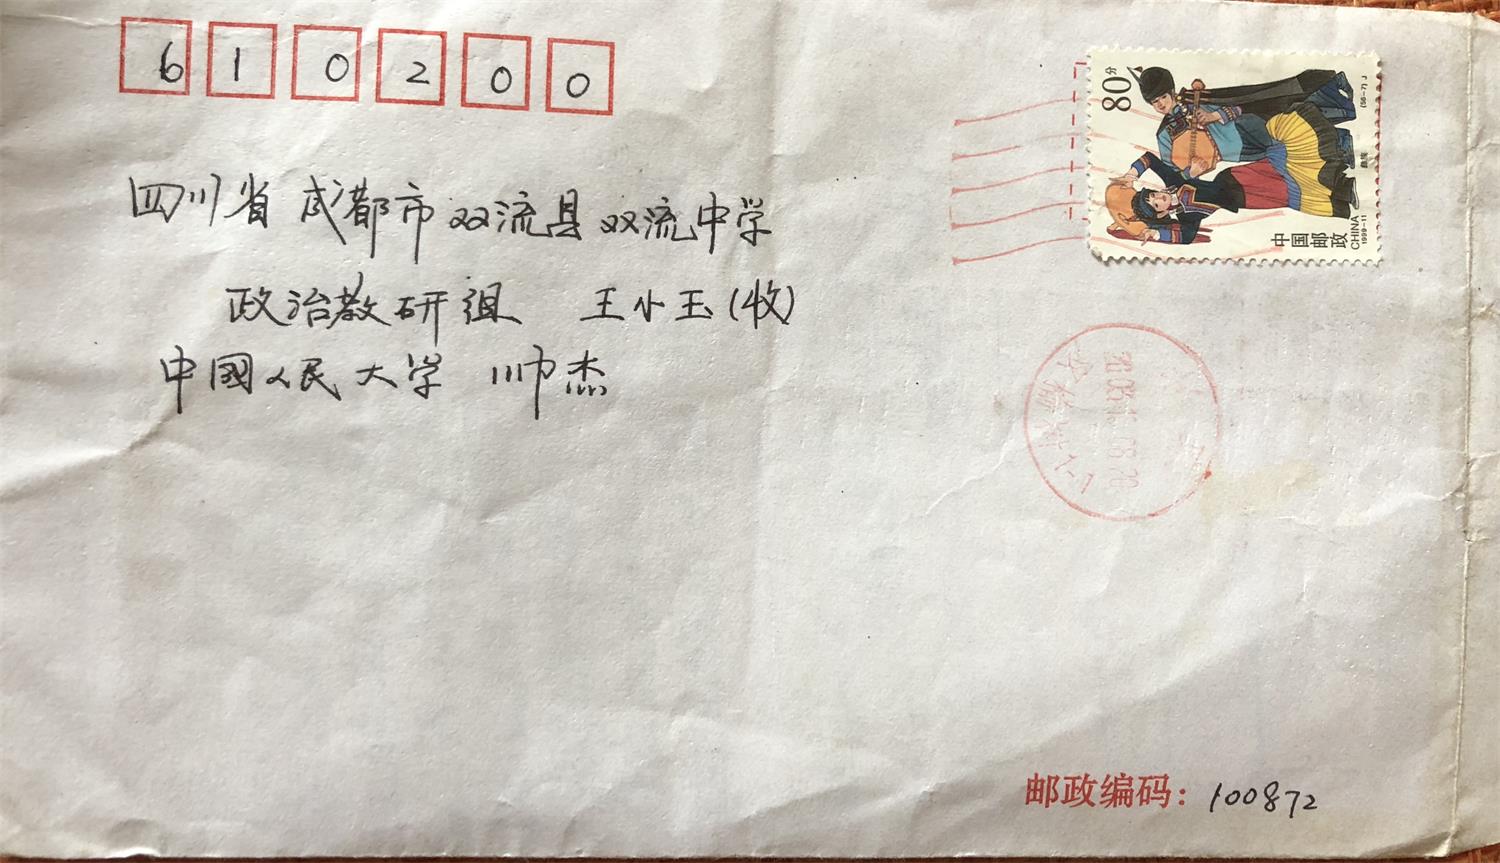 610200
80分
(56-7) J
中国邮政
CHINA
1999-11
四川省 成都市 双流县 双流中学
政治教研组 王小玉(收)
中國人民大学 帅杰
邮政编码：100872